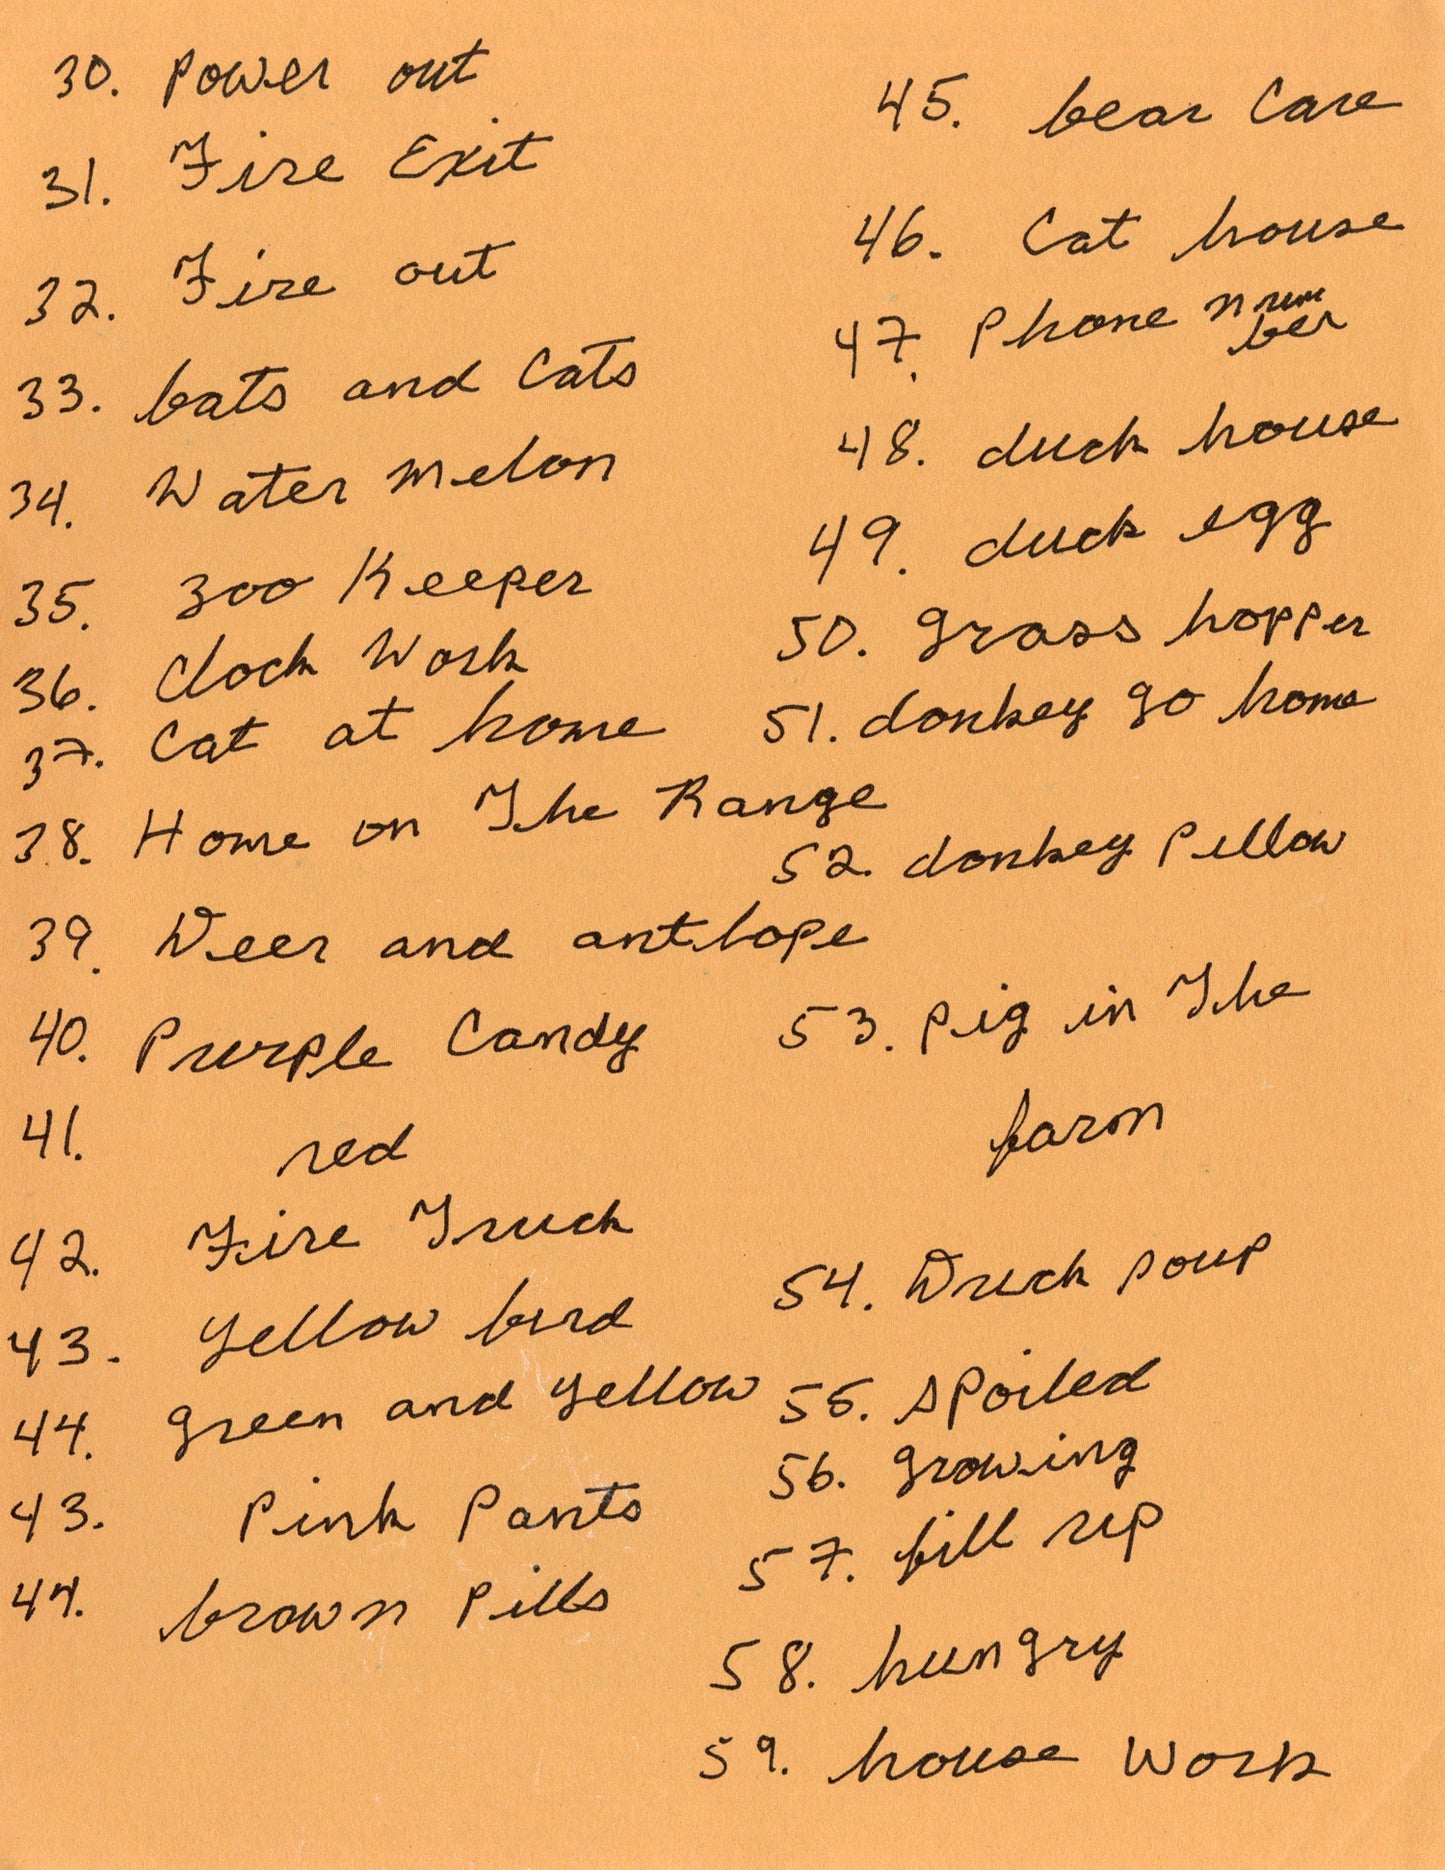 30. Power out
31. Fire Exit
32. Fire out
33. bats and Cats
34. Water Melon
35. Zoo Keeper
36. Clock Work
37. Cat at home
38. Home on The Range
39. Deer and antlope
40. Purple Candy
41. red
42. Fire Truck
43. Yellow bird
44. green and yellow
43. Pink Pants
44. brown Pills
45. bear Care
46. Cat house
47. Phone num
ber
48. duck house
49. duck egg
50. grass hopper
51. donkey go home
52. donkey Pillow
53. Pig in The
farm
54. Duck soup
55. spoiled
56. growing
57. fill up
58. hungry
59. house Work